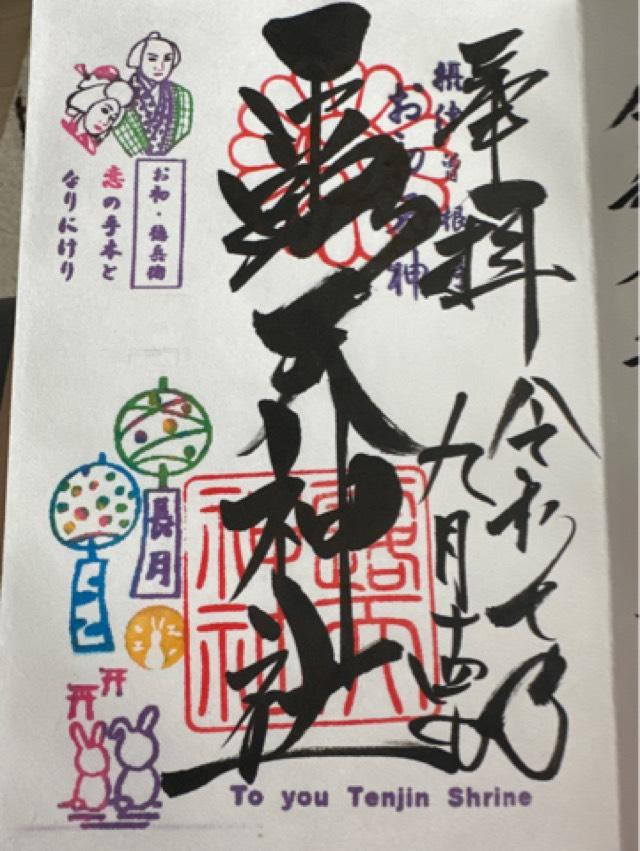 奉拝
令和七年
九月十四日
摂津 曽根崎
お初天神
露天神社
露天
神社
お初・徳兵衛
恋の手本と
なりにけり
長月
To you Tenjin Shrine